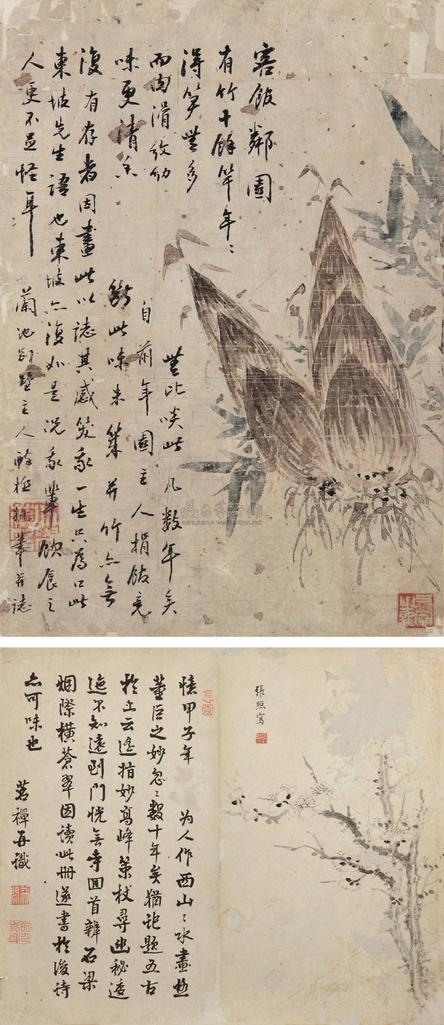 客飯鄰園
有竹十餘竿年〻
得笋甚多
而肉滑紋幼
味更清
無比啖此凡數年矣
自前年園主人捐館竟
斷此味未幾並竹亦無
復有存者因畫此以誌其感笑我一生只為口此
東坡先生語也東坡亦復如是況我輩飲食之
人更不足怪耳
蘭池別墅主人
筆並誌
張照寫
憶甲子年 為人作西山〻水畫極
董巨之妙忽〻數十年矣猶記題五古
於上云遙指妙高峰策杖尋幽秘逶
迤不知遠到門恍無寺回首辨石梁
烟際橫蒼翠因讀此冊遂書於後詩
亦可味也
茗禪再識